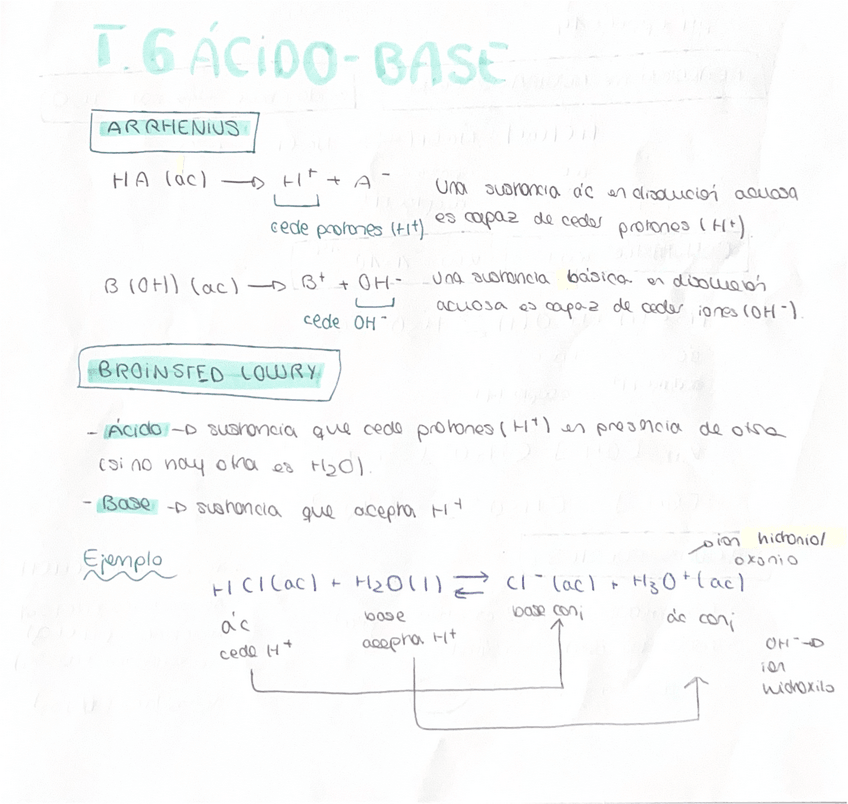 T.6 ÁCIDO-BASE
ARRHENIUS
HA (ac) → H⁺ + A⁻
cede protones (H⁺)
Una sustancia ác en disolución acuosa
es capaz de ceder protones (H⁺).
B(OH) (ac) → B⁺ + OH⁻
cede OH⁻
Una sustancia básica en disolución
acuosa es capaz de ceder iones (OH⁻).
BROINSTED LOWRY
- Ácido → sustancia que cede protones (H⁺) en presencia de otra
(si no hay otra es H₂O).
- Base → sustancia que acepta H⁺
Ejemplo
ion hidronio/
oxonio
HCl(ac) + H₂O(l) ⇌ Cl⁻(ac) + H₃O⁺(ac)
ác
cede H⁺
base
acepta H⁺
base conj
ác conj
OH⁻→
ion
hidroxilo